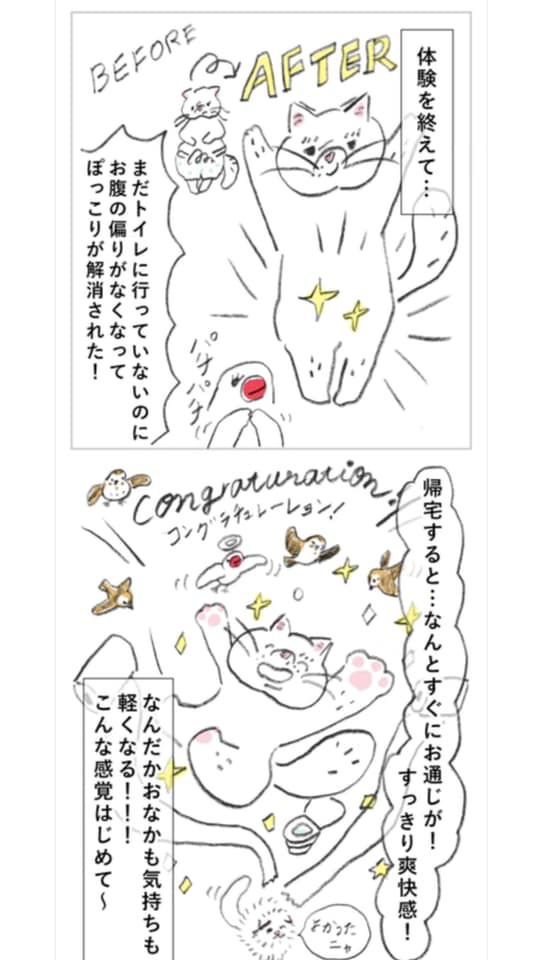 体験を終えて…
BEFORE
AFTER
まだトイレに行っていないのに
お腹の偏りがなくなって
ぽっこりが解消された！
パチパチ
Congraturation!
コングラチュレーション！
帰宅すると…なんとすぐにお通じが！
すっきり爽快感！
なんだかおなかも気持ちも
軽くなる！！！
こんな感覚はじめて～
よかった
ニャ